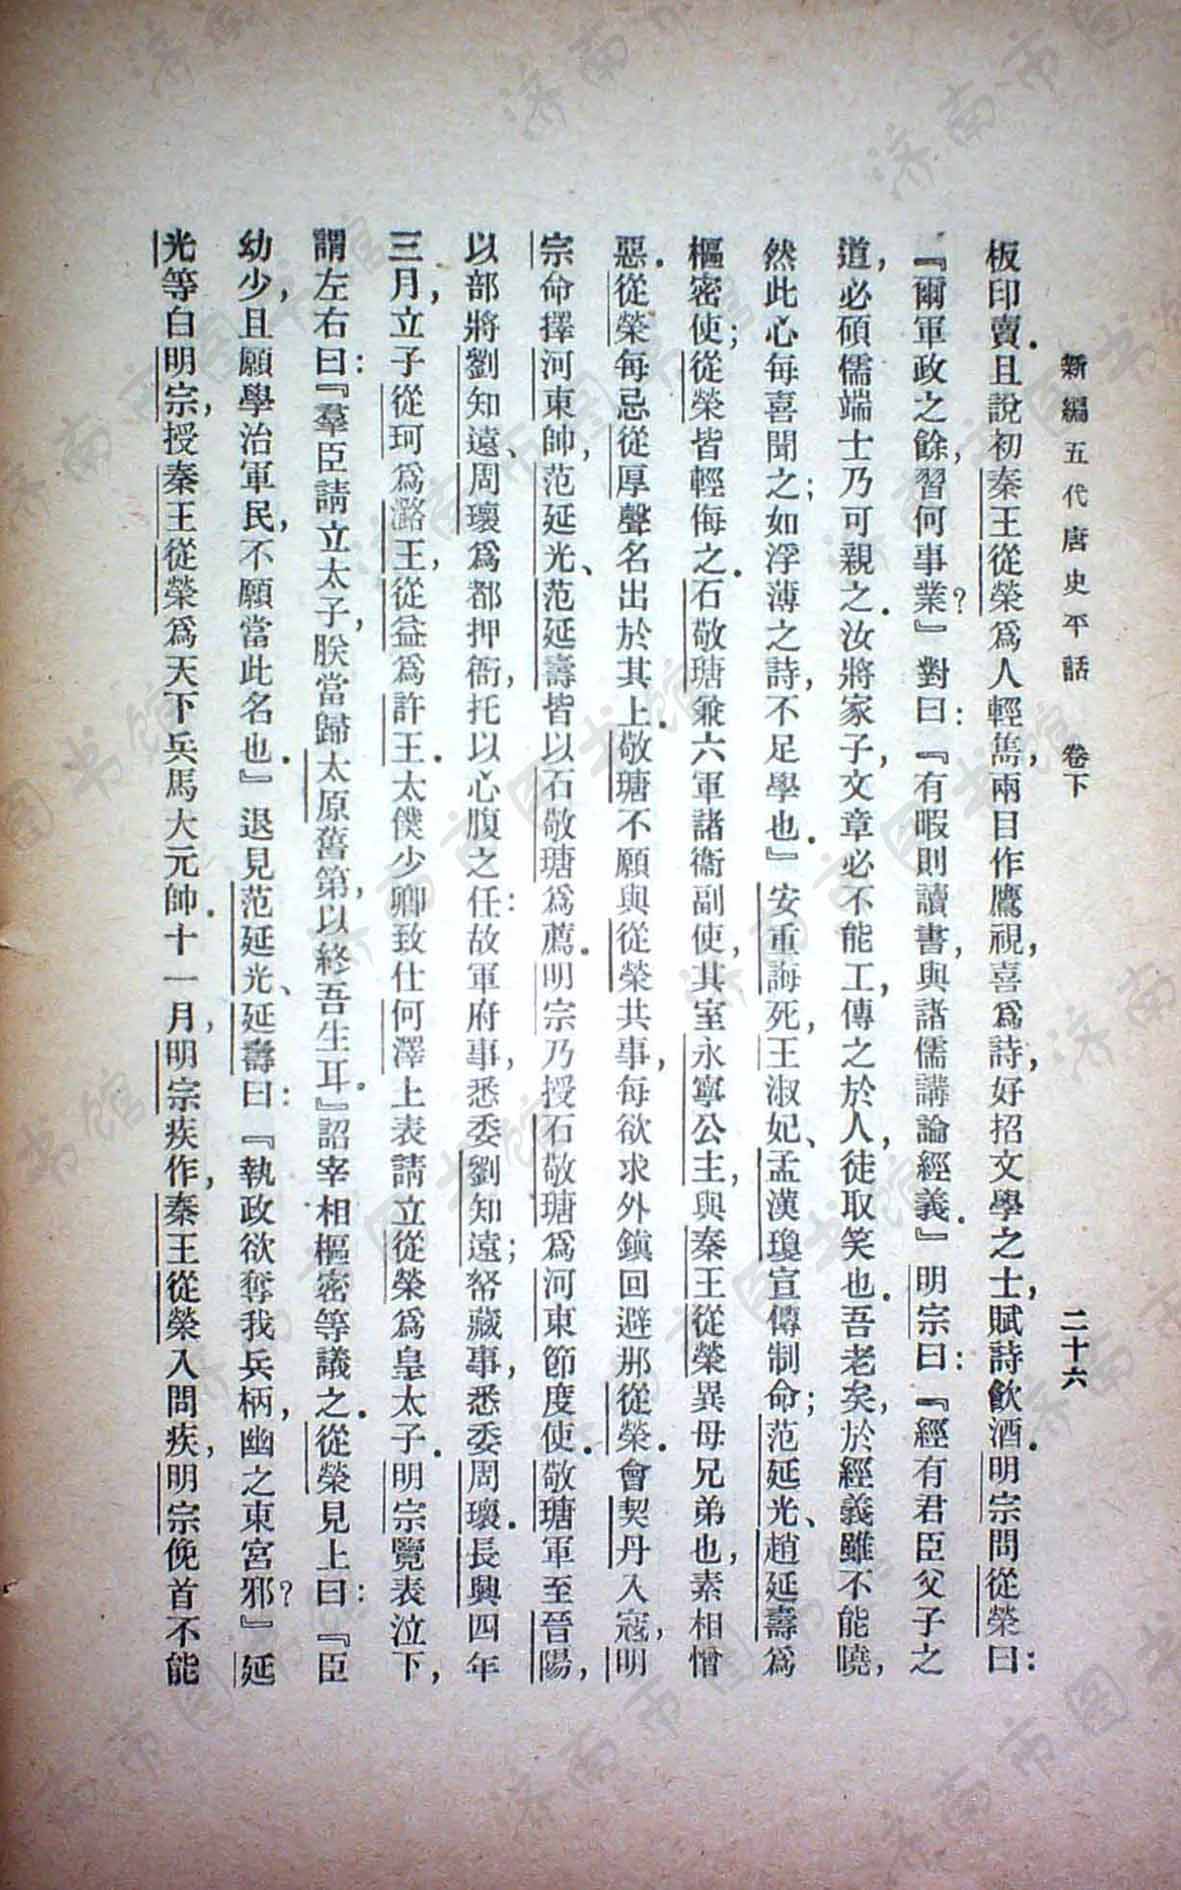 新編五代唐史平話　卷下　二十六
板印賣．且說初秦王從榮爲人輕雋，兩目作鷹視，喜爲詩，好招文學之士，賦詩飲酒．明宗問從榮曰：
『爾軍政之餘，習何事業？』對曰：『有暇則讀書，與諸儒講論經義．』明宗曰：『經有君臣父子之
道，必碩儒端士乃可親之．汝將家子，文章必不能工，傳之於人，徒取笑也．吾老矣，於經義雖不能曉，
然此心每喜聞之；如浮薄之詩，不足學也．』安重誨死，王淑妃、孟漢瓊宣傳制命；范延光、趙延壽爲
樞密使；從榮皆輕侮之．石敬瑭兼六軍諸衞副使，其室永寧公主，與秦王從榮異母兄弟也，素相憎
惡．從榮每忌從厚聲名出於其上．敬瑭不願與從榮共事，每欲求外鎮回避那從榮．會契丹入寇，明
宗命擇河東帥，范延光、范延壽皆以石敬瑭爲薦．明宗乃授石敬瑭爲河東節度使．敬瑭軍至晉陽，
以部將劉知遠、周瓌爲都押衙，托以心腹之任：故軍府事，悉委劉知遠；帑藏事，悉委周瓌．長興四年
三月，立子從珂爲潞王，從益爲許王．太僕少卿致仕何澤上表請立從榮爲皇太子．明宗覽表泣下，
謂左右曰：『羣臣請立太子，朕當歸太原舊第，以終吾生耳．』詔宰相樞密等議之．從榮見上曰：『臣
幼少，且願學治軍民，不願當此名也．』退見范延光、延壽曰：『執政欲奪我兵柄，幽之東宮邪？』延
光等白明宗，授秦王從榮爲天下兵馬大元帥．十一月，明宗疾作，秦王從榮入問疾，明宗俛首不能
济南市图书馆